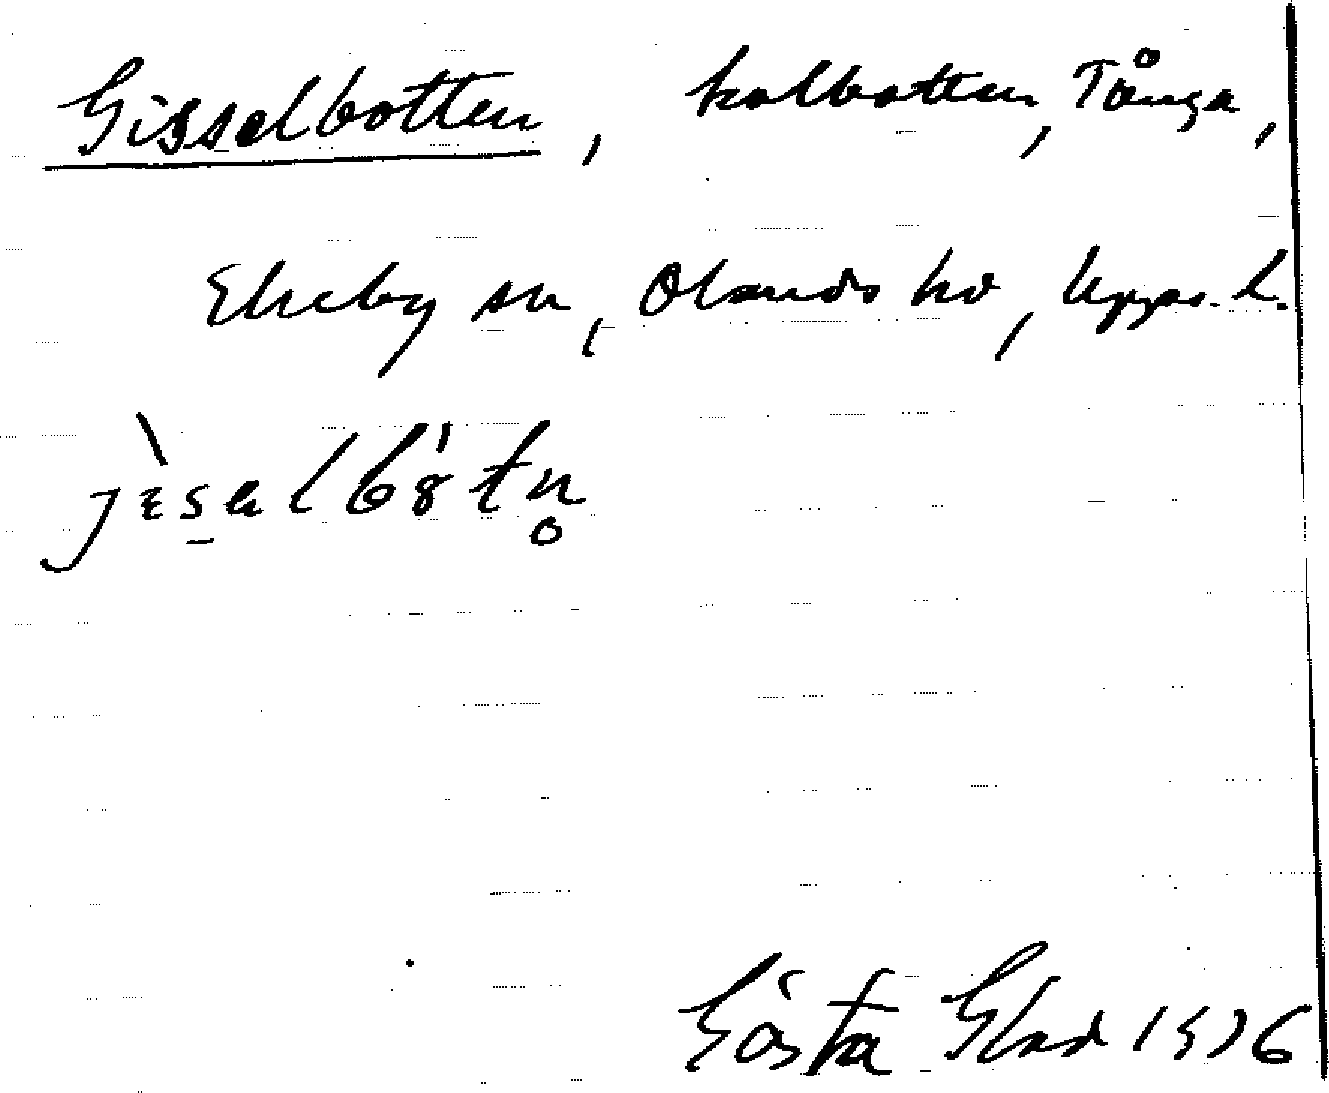 Gisselbotten, kolbotten, Tånga,
Ekeby sn, Olands hd, Upps. l.
jɛ̀səlbötn̥
Gösta Glad 1976